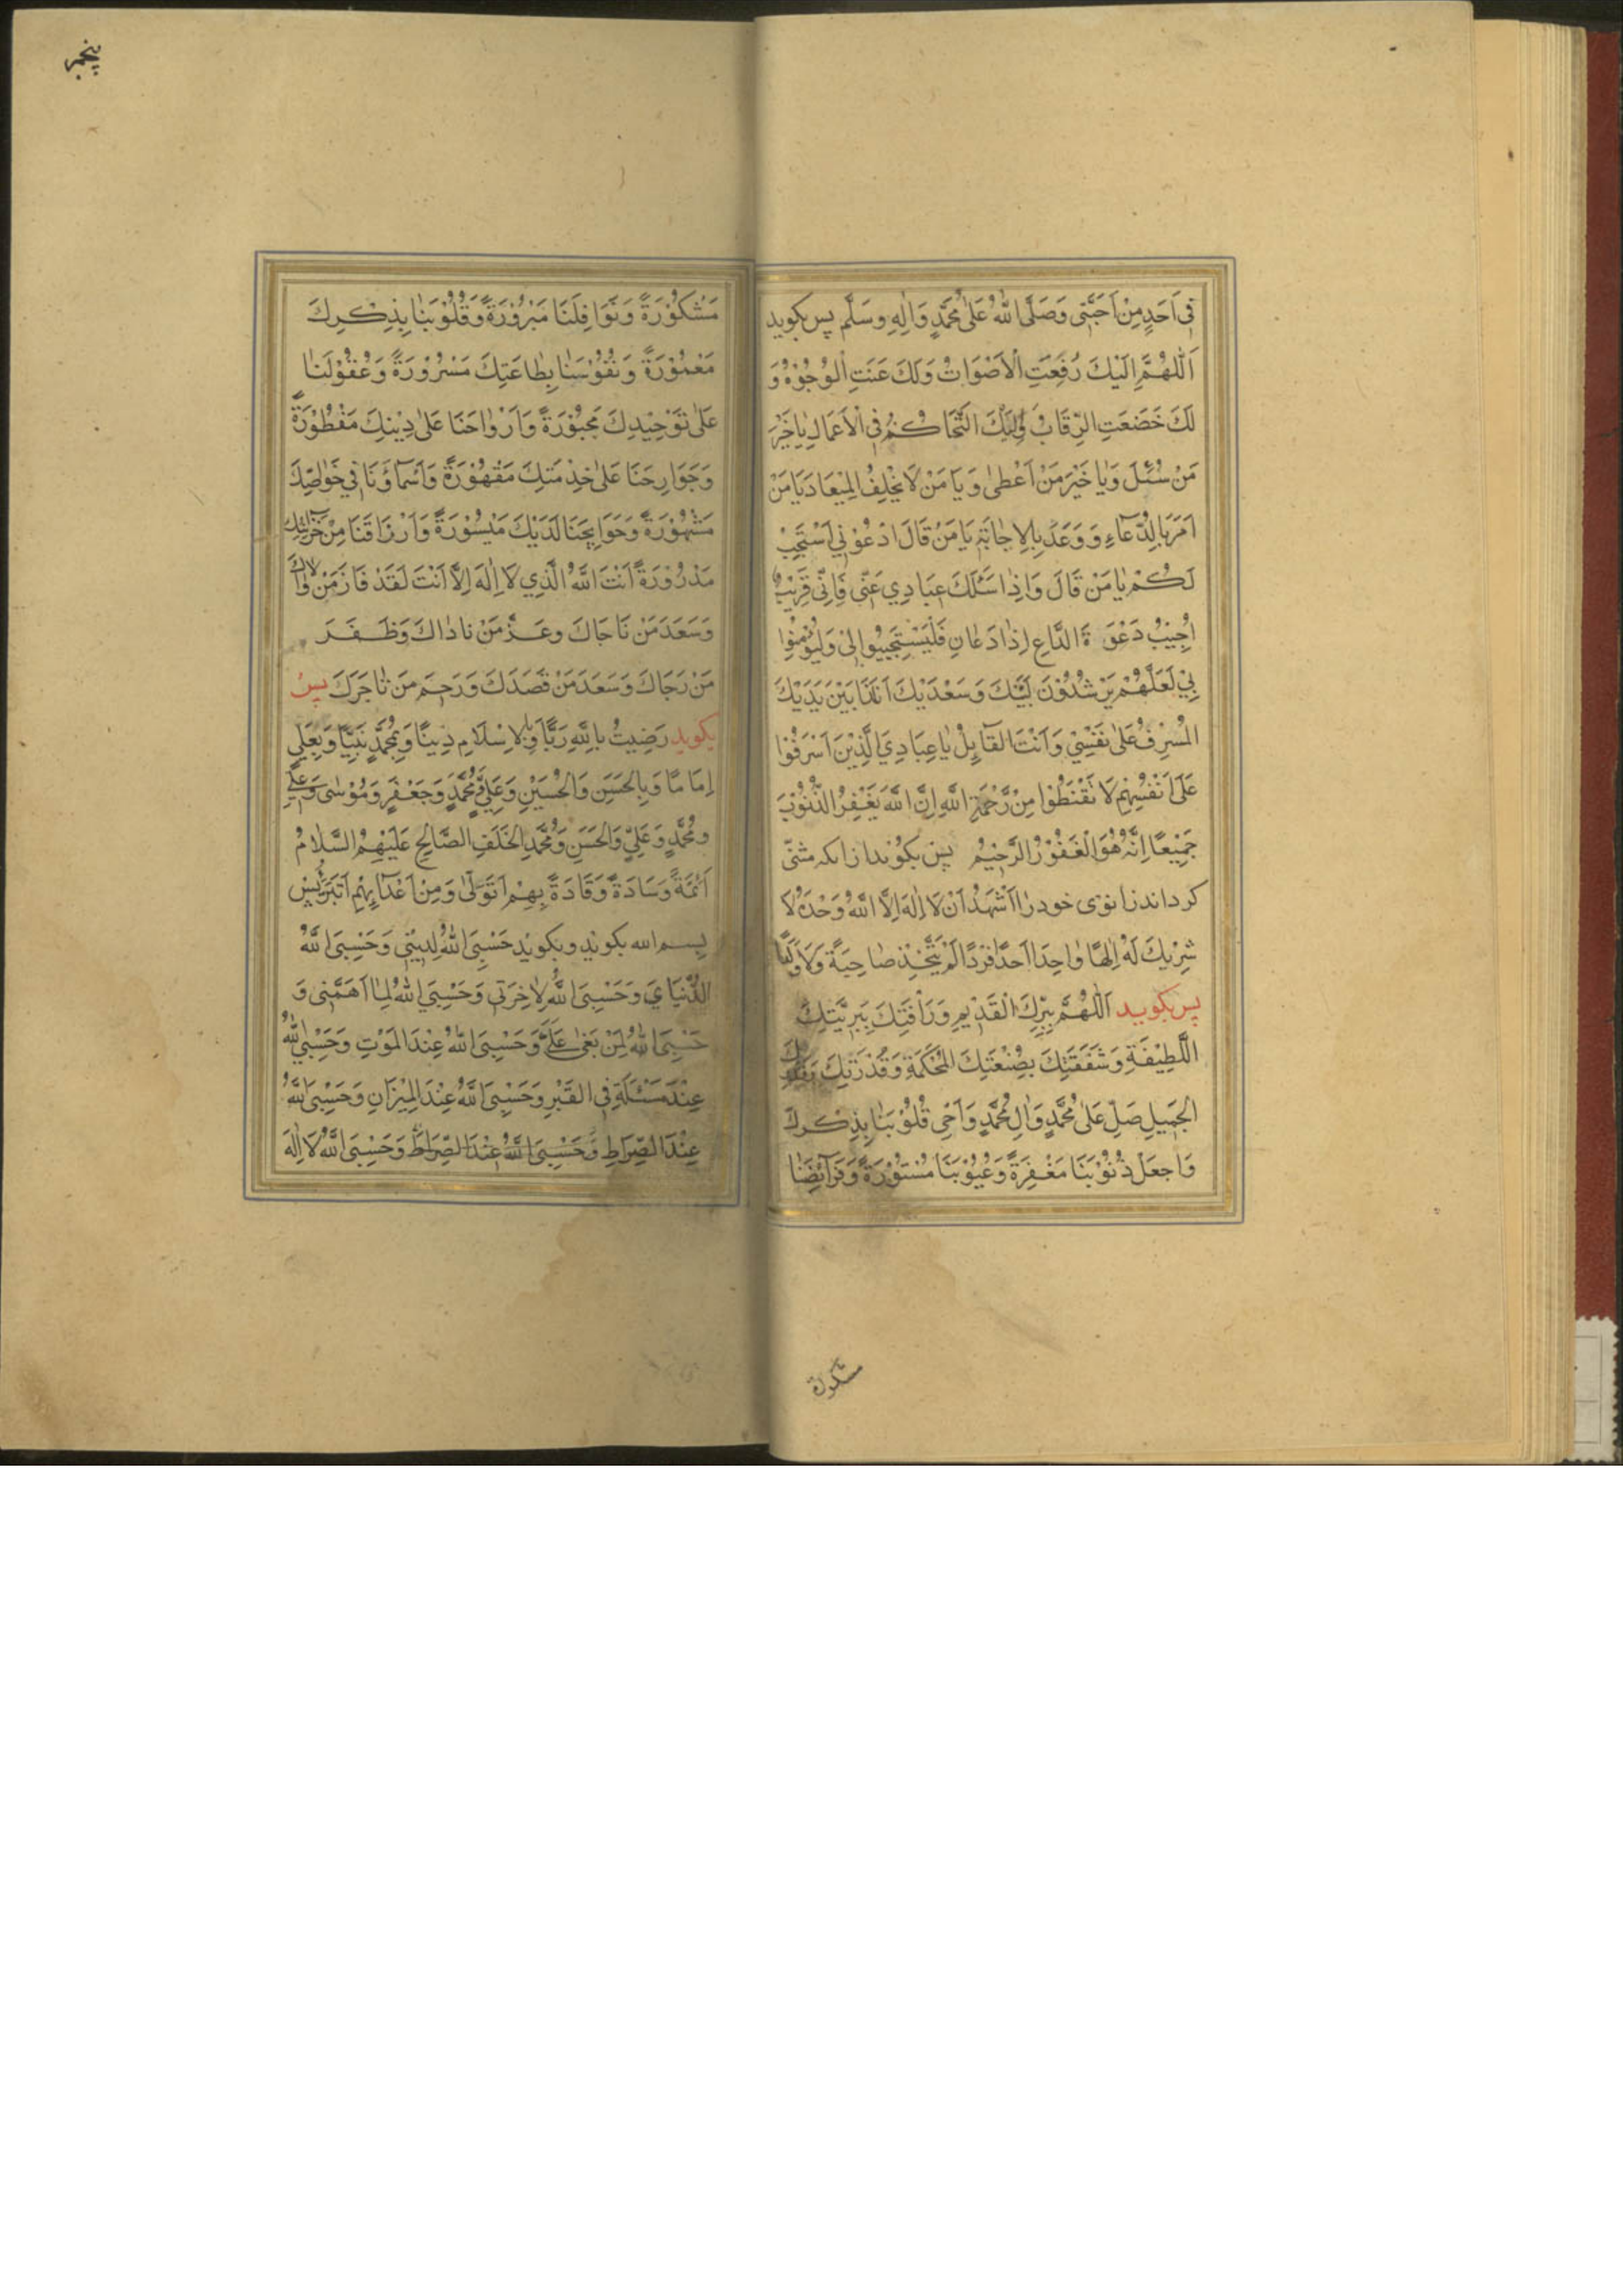 فِي اَحَدٍ مِنْ اَحَبَّنِي وَصَلَّى اللهُ عَلىٰ مُحَمَّدٍ وَاٰلِهِ وَسَلَّم پس بکوید
اَللّٰهُمَّ اِلَيْكَ رُفِعَتِ الْاَصْوَاتُ وَلَكَ عَنَتِ الْوُجُوْهُ وَ
لَكَ خَضَعَتِ الرِّقَابُ وَاِلَيْكَ التَّحَاكُمُ فِي الْاَعْمَالِ يٰا خَيْرَ
مَنْ سُئِلَ وَيٰا خَيْرَ مَنْ اَعْطىٰ وَيَا مَنْ لَا يُخْلِفُ الْمِيْعَادَ يَا مَنْ
اَمَرَ بِالدُّعَاءِ وَوَعَدَ بِالْاِجٰابَةِ يَا مَنْ قَالَ ادْعُوْنِي اَسْتَجِبْ
لَكُمْ يٰا مَنْ قَالَ وَاِذٰا سَئَلَكَ عِبَادِي عَنِّي فَاِنِّي قَرِيْبٌ
اُجِيْبُ دَعْوَةَ الدَّاعِ اِذٰا دَعَانِ فَلْيَسْتَجِيبُوا لِي وَلْيُؤْمِنُوا
بِي لَعَلَّهُمْ يَرْشُدُوْنَ لَبَّيْكَ وَسَعْدَيْكَ اَنَذَا بَيْنَ يَدَيْكَ
الْمُسْرِفُ عَلىٰ نَفْسِيْ وَاَنْتَ الْقَآئِلُ يٰا عِبَادِيَ الَّذِيْنَ اَسْرَفُوْا
عَلَى اَنْفُسِهِمْ لَا تَقْنَطُوْا مِنْ رَّحْمَةِ اللّهِ اِنَّ اللّهَ يَغْفِرُ الذُّنُوْبَ
جَمِيْعًا اِنَّهُ هُوَ الْغَفُوْرُ الرَّحِيْمُ پس بکویند ازانکه مثنّی
کرداند زانوی خود را اَشْهَدُ اَنْ لَا اِلٰهَ اِلَّا اللّهُ وَحْدَهُ لَا
شَرِيْكَ لَهُ اِلٰهًا وٰاحِدًا اَحَدًا فَرْدًا لَمْ يَتَّخِذْ صٰاحِبَةً وَلَا وَلَدًا
پس بکویید اَللّٰهُمَّ بِبِرِّكَ الْقَدِيْمِ وَرَأْفَتِكَ بِبَرِيَّتِكَ
اللَّطِيْفَةِ وَشَفَقَتِكَ بِصُنْعَتِكَ الْمُحْكَمَةِ وَقُدْرَتِكَ
الْجَمِيلِ صَلِّ عَلىٰ مُحَمَّدٍ وَاٰلِ مُحَمَّدٍ وَاَحْيِ قُلُوْبَنٰا بِذِكْرِكَ
وَاجْعَلْ ذُنُوْبَنَا مَغْفِرَةً وَعُيُوْبَنَا مَسْتُوْرَةً وَفَرَآئِضَنٰا
مشکورة
پنجم
مَشْكُوْرَةً وَنَوَافِلَنَا مَبْرُوْرَةً وَقُلُوْبَنٰا بِذِكْرِكَ
مَعْمُوْرَةً وَنُفُوْسَنٰا بِطٰاعَتِكَ مَسْرُوْرَةً وَعُقُوْلَنٰا
عَلىٰ تَوْحِيْدِكَ مَجْبُوْرَةً وَاَرْوٰاحَنَا عَلىٰ دِيْنِكَ مَفْطُوْرَةً
وَجَوَارِحَنَا عَلىٰ خِدْمَتِكَ مَقْهُوْرَةً وَاَسْمَآؤَنَا فِي خَوٰاصِّكَ
مَشْهُوْرَةً وَحَوَايِجَنَا لَدَيْكَ مَيْسُوْرَةً وَاَرْزَاقَنَا مِنْ خَزٰآئِنِكَ
مَدْرُوْرَةً اَنْتَ اللّهُ الَّذِي لَا اِلٰهَ اِلَّا اَنْتَ لَقَدْ فَازَ مَنْ وٰالَاكَ
وَسَعَدَ مَنْ نَاجَاكَ وَعَزَّ مَنْ نادٰاكَ وَظَفَرَ
مَنْ رَجَاكَ وَسَعَدَ مَنْ قَصَدَكَ وَرَحِمَ مَنْ تٰاجَرَكَ پس
بکوید رَضِيتُ بِاللّهِ رَبًّا وَبِالْاِسْلَامِ دِينًا وَبِمُحَمَّدٍ نَبِيًّا وَبِعَلِيٍّ
اِمَامًا وَبِالْحَسَنِ وَالْحُسَيْنِ وَعَلِيٍّ وَمُحَمَّدٍ وَجَعْفَرٍ وَمُوْسىٰ وَعَلِيٍّ
وَمُحَمَّدٍ وَعَلِيٍّ وَالْحَسَنِ وَمُحَمَّدِ الْخَلَفِ الصَّالِحِ عَلَيْهِمُ السَّلٰامُ
اَئِمَّةً وَسَادَةً وَقَادَةً بِهِمْ اَتَوَلّىٰ وَمِنْ اَعْدَآئِهِمْ اَتَبَرَّأُ پس
بسم الله بکوید و بکوید حَسْبِيَ اللهُ لِدِيْنِي وَحَسْبِيَ اللّهُ
الدُّنْيَايَ وَحَسْبِيَ اللّهُ لِاٰخِرَتِي وَحَسْبِيَ اللهُ لِمٰا اَهَمَّنِي وَ
حَسْبِيَ اللهُ لِمَنْ بَغىٰ عَلَيَّ وَحَسْبِيَ اللهُ عِنْدَ الْمَوْتِ وَحَسْبِيَ اللّهُ
عِنْدَ مَسْئَلَةٍ فِي الْقَبْرِ وَحَسْبِيَ اللّهُ عِنْدَ الْمِيْزَانِ وَحَسْبِيَ اللّهُ
عِنْدَ الصِّرَاطِ وَحَسْبِيَ اللّهُ عِنْدَ الصِّرَاطِ وَحَسْبِيَ اللّهُ لَا اِلٰهَ